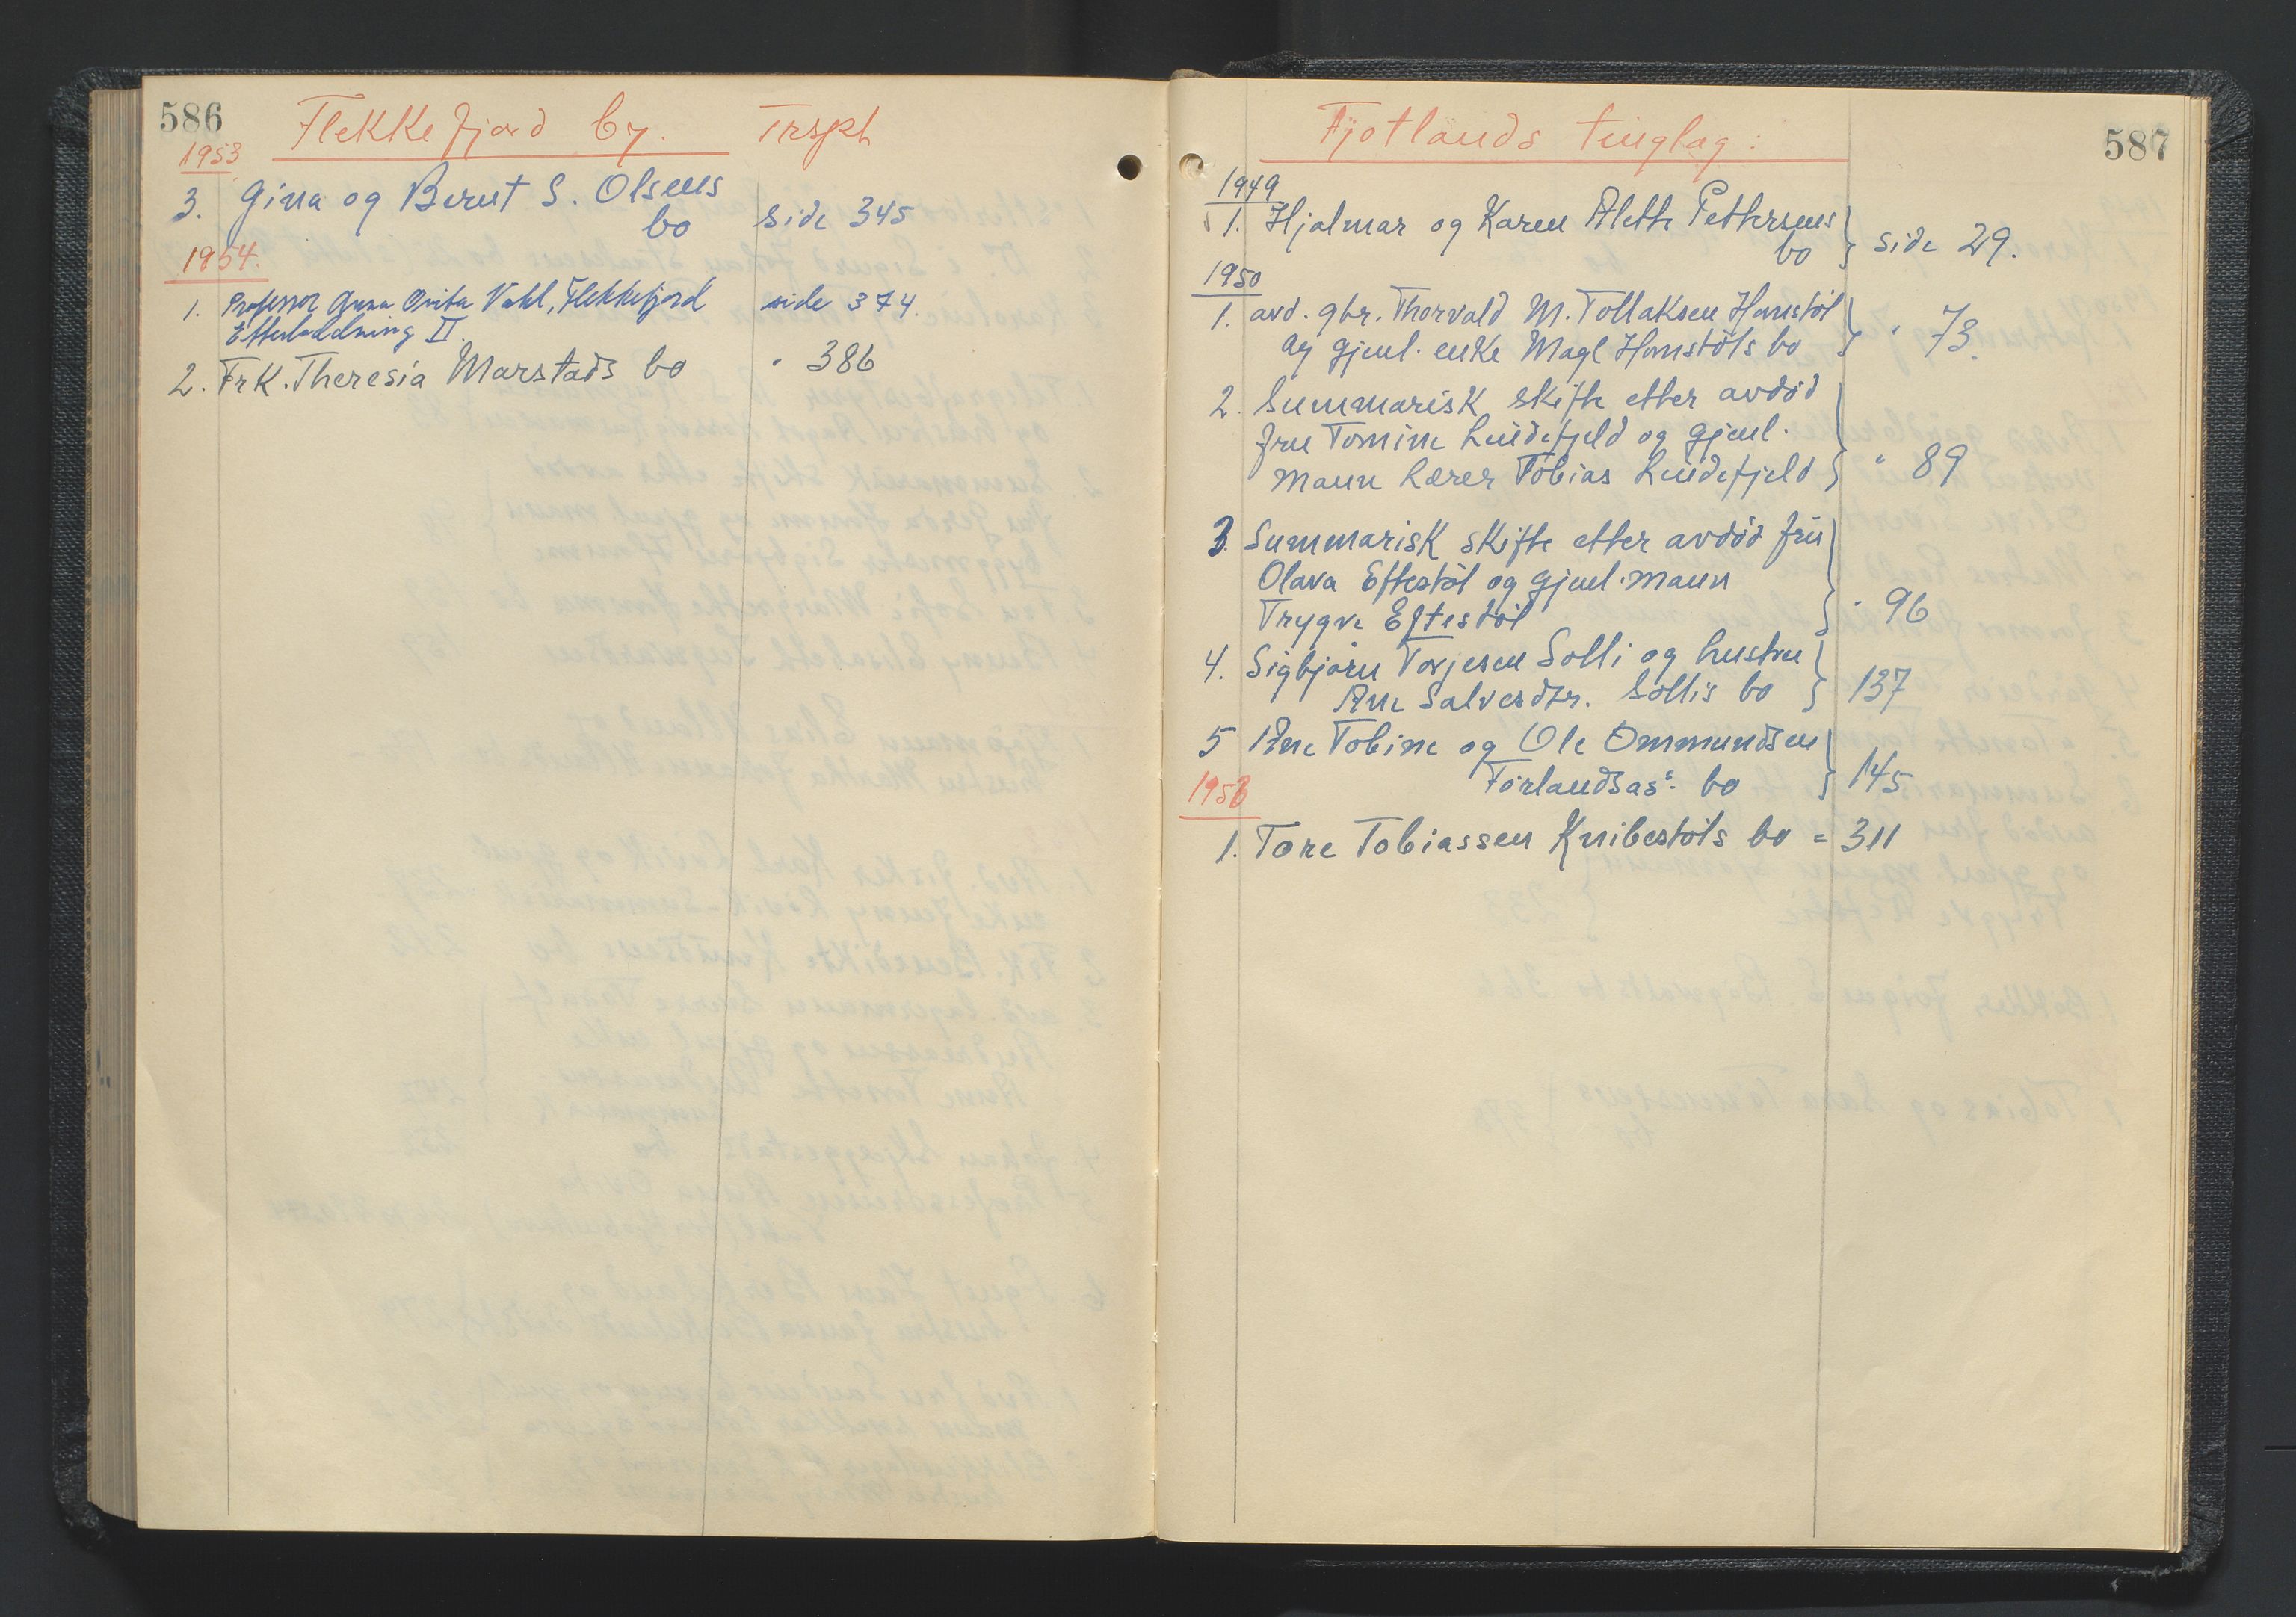 586
Flekkefjord by. Trspt
1953
3. Gina og Bernt S. Olsens
bo side 345
1954.
1. Professor Anna Ovita Vahl, Flekkefjord side 374.
Etterutlodning II
2. Frk. Theresia Marstads bo " 386
587
Fjotlands tinglag:
1949
1. Hjalmar og Karen Alette Pettersens
bo side 29.
1950
1. avd. gbr. Thorvald M. Tollaksen Homstöl
og gjenl. enke Magl Homstöls bo " 73.
2. Summarisk skifte etter avdöd
fru Tomine Lindefjeld og gjenl.
mann Lærer Tobias Lindefjeld " 89
3. Summarisk skifte etter avdöd fru
Olava Eftestöl og gjenl. mann
Trygve Eftestöl " 96
4. Sigbjörn Torjesen Solli og hustru
Ane Salvesdtr. Sollis bo 137
5 Ane Tobine og Ole Ommundsen
Förlandsås: bo 145
1953
1. Tore Tobiassen Knibestöls bo = 311